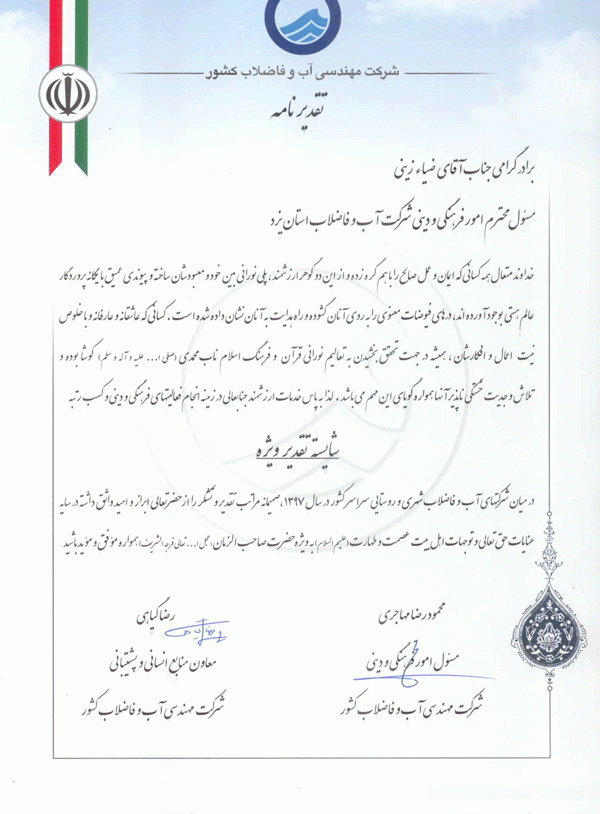 شرکت مهندسی آب و فاضلاب کشور
تقدیر نامه
برادر گرامی جناب آقای ضیاء زینی
مسئول محترم امور فرهنگی و دینی شرکت آب و فاضلاب استان یزد
خداوند متعال همه کسانی که ایمان و عمل صالح را با هم گره زده و از این دو گوهر ارزشمند، پلی نورانی بین خود و معبودشان ساخته و پیوندی عمیق با یگانه پروردگار
عالم هستی بوجود آورده اند، درهای فیوضات معنوی را به روی آنان گشوده و راه هدایت به آنان نشان داده شده است . کسانی که عاشقانه و عارفانه و با خلوص
نیت اعمال و افکارشان ، همیشه در جهت تحقق بخشیدن به تعالیم نورانی قرآن و فرهنگ اسلام ناب محمدی (صلی ا... علیه و آله و سلم) کوشا بوده و
تلاش و جدیت خستگی ناپذیر آنها همواره گویای این مهم می باشد . لذا به پاس خدمات ارزشمند جنابعالی در زمینه انجام فعالیتهای فرهنگی و دینی و کسب رتبه
شایسته تقدیر ویژه
در میان شرکتهای آب و فاضلاب شهری و روستایی سراسر کشور در سال ۱۳۹۷، صمیمانه مراتب تقدیر و تشکر را از حضرتعالی ابراز و امید واثق داشته در سایه
عنایات حق تعالی و توجهات اهل بیت عصمت و طهارت (علیهم السلام) به ویژه حضرت صاحب الزمان (عجل ا... تعالی فرجه الشریف) همواره موفق و مؤید باشید
محمودرضا مهاجری
مسئول امور فرهنگی و دینی
شرکت مهندسی آب و فاضلاب کشور
رضا گیاهی
معاون منابع انسانی و پشتیبانی
شرکت مهندسی آب و فاضلاب کشور